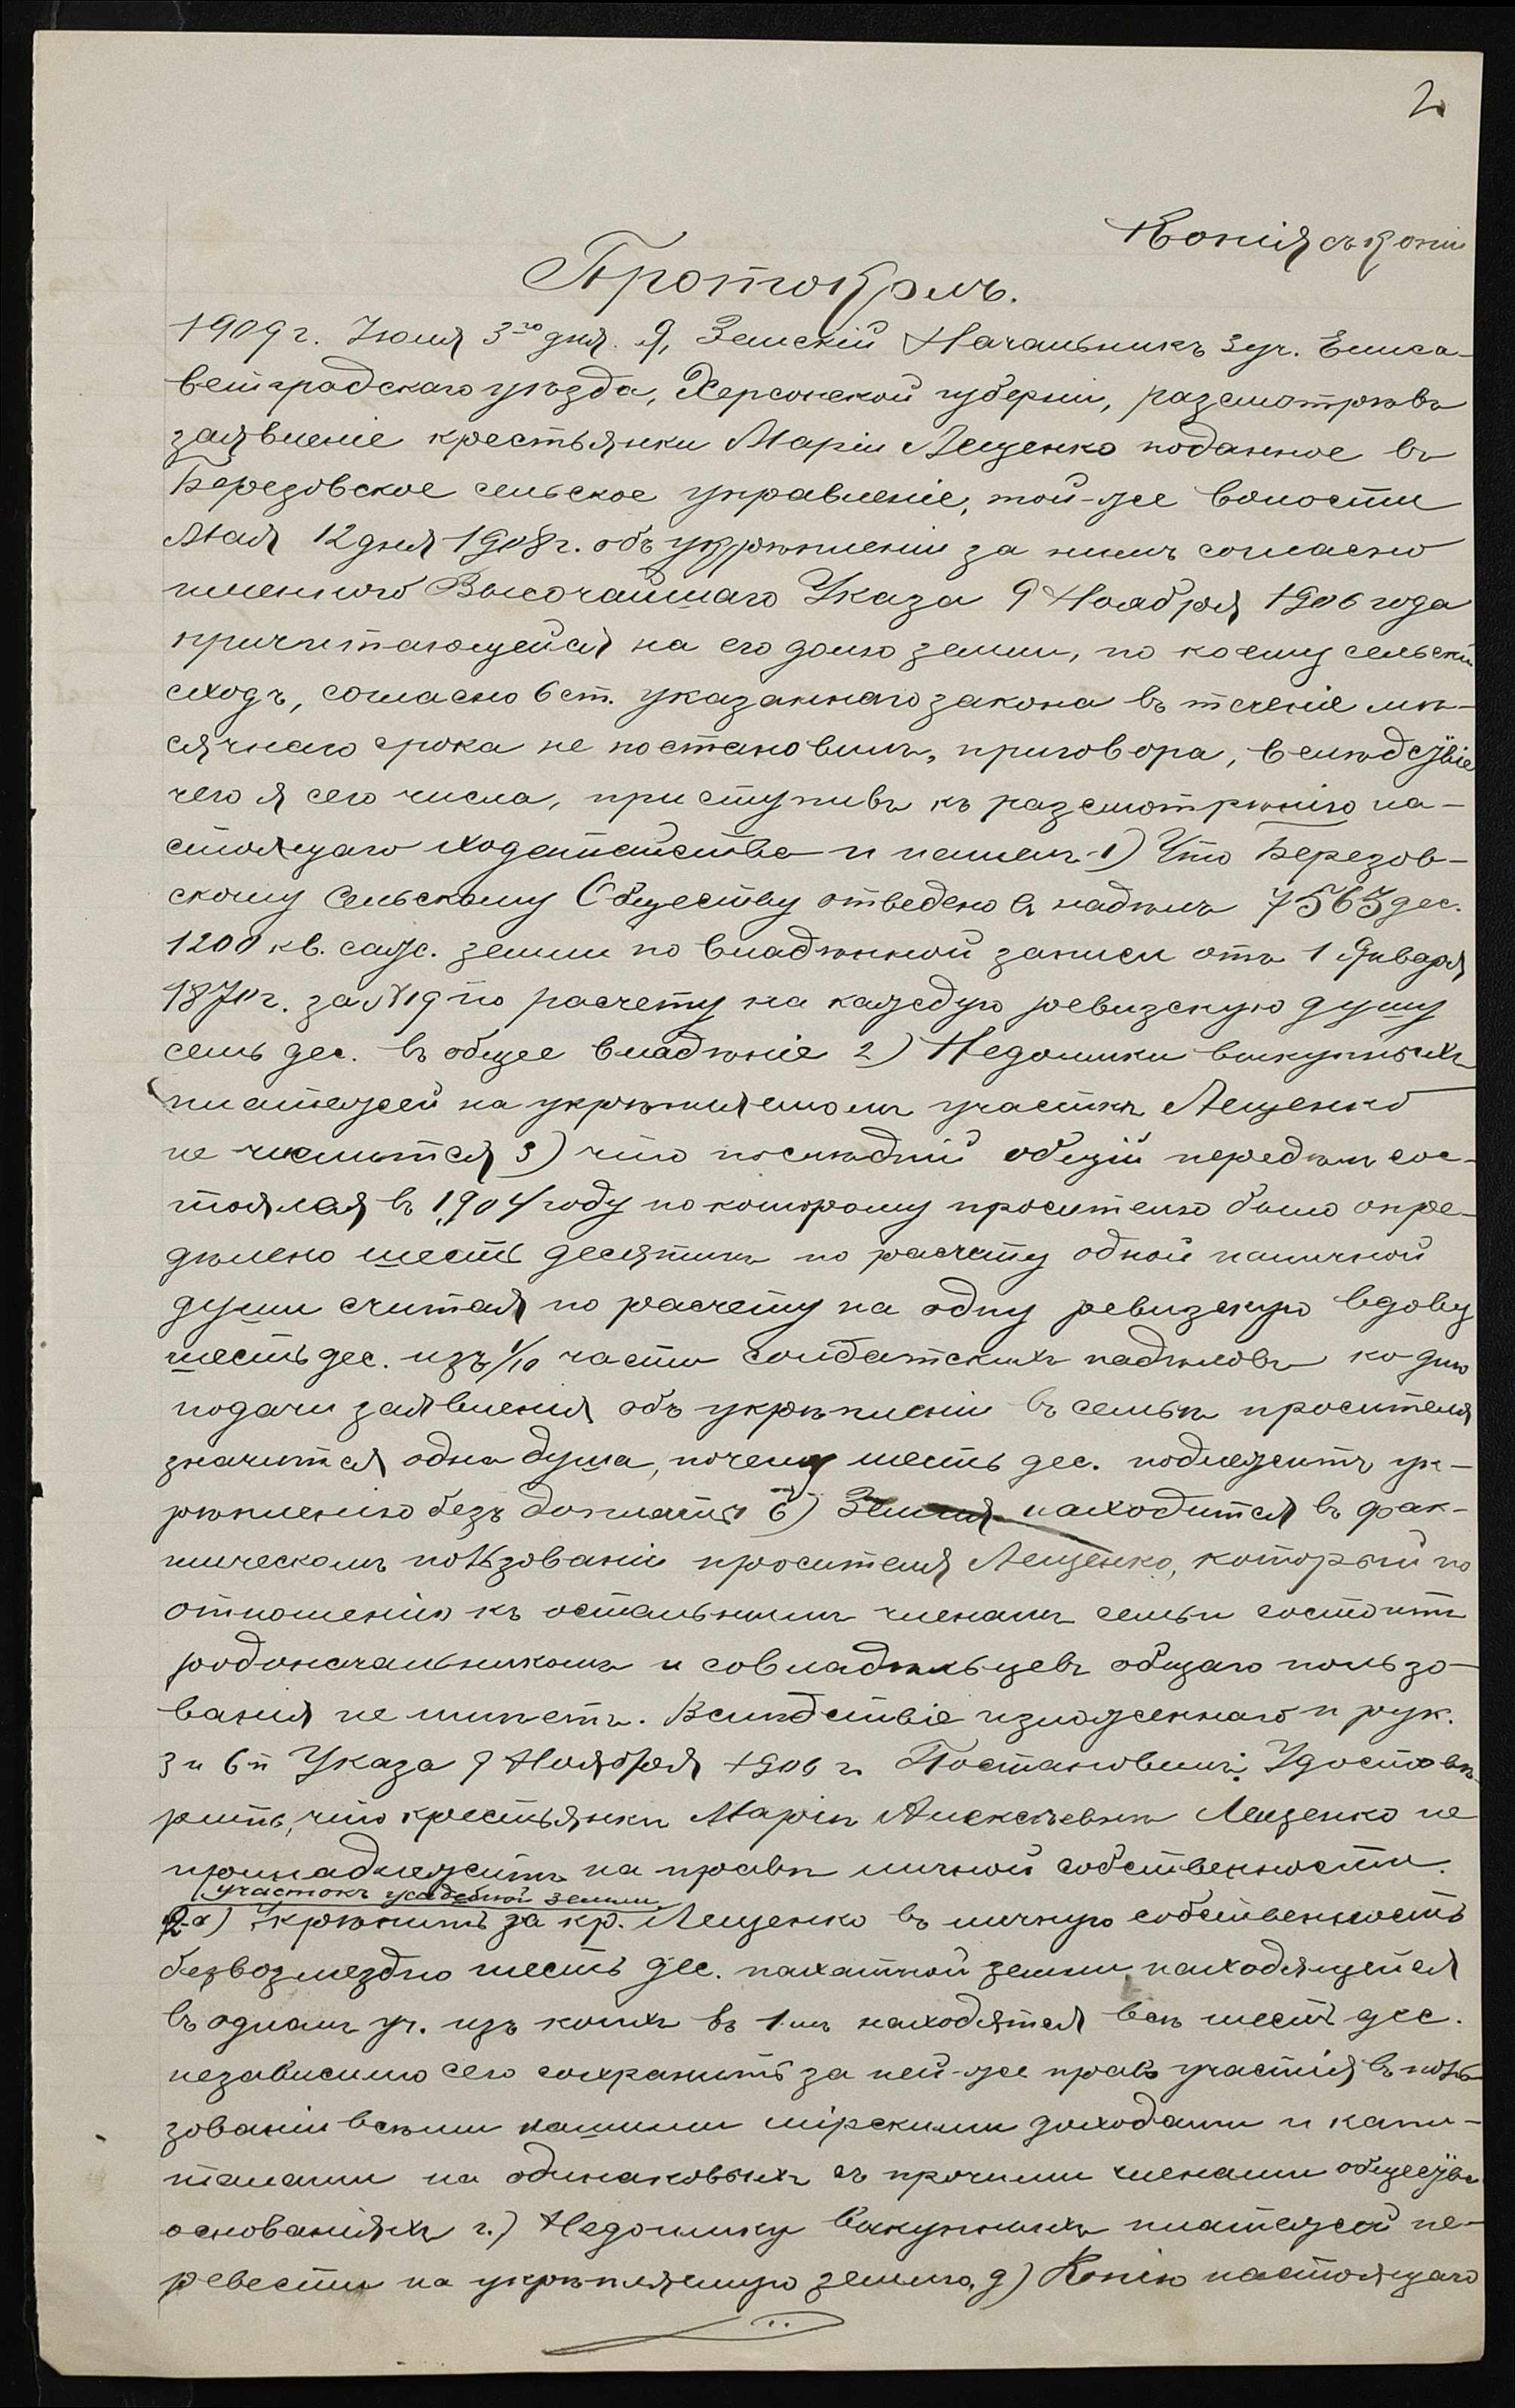 2
Копія съ копіи
Протоколъ.
1909 г. Іюля 3го дня. Я, Земскій Начальникъ 3 уч. Елиса-
ветградскаго уѣзда, Херсонской губерніи, разсмотрѣвъ
заявленіе крестьянки Маріи Лещенко поданное въ
Березовское сельское управленіе, той-же волости
Мая 12 дня 1908 г. объ укрѣпленіи за нимъ согласно
именного Высочайшаго Указа 9 Ноября 1906 года
причитающейся на его долю земли, по коему сельскій
сходъ, согласно 6 ст. указаннаго закона въ теченіе мѣ-
сячнаго срока не постановилъ, приговора, вслѣдствіе
чего я сего числа, приступивъ къ разсмотрѣнію на-
стоящаго ходатайства и нашелъ 1) Что Березов-
скому Сельскому Обществу отведено въ надѣлъ 7563 дес.
1200 кв. саж. земли по владѣнной записи отъ 1 Января
1870 г. за №19 по расчету на каждую ревизскую душу
семь дес. въ общее владѣніе 2) Недоимки выкупныхъ
платежей на укрѣпляемомъ участкѣ Лещенко
не числится 3) что послѣдній общій передѣлъ сос-
тоялся въ 1904 году по которому просителю было опре-
дѣлено шесть десятинъ по расчету одной наличной
души считая по расчету на одну ревизскую вдову
шесть дес. изъ 1/10 части солдатскихъ надѣловъ ко дню
подачи заявленія объ укрѣпленіи въ семьѣ просителя
значится одна душа, почему шесть дес. подлежитъ ук-
рѣпленію безъ доплаты 6) Земля находится въ фак-
тическомъ пользованіи просителя Лещенко, который по
отношенію къ остальнымъ членамъ семьи состоитъ
родоначальникомъ и совладѣльцевъ общаго пользо-
ванія не имѣетъ. Вслѣдствіе изложеннаго и рук.
3 и 6 п Указа 9 Ноября 1906 г. Постановилъ: Удостовѣ-
рить, что крестьянкѣ Маріи Алексѣевнѣ Лещенко не
принадлежитъ на правѣ личной собственности
участокъ усадебной земли
2 а) Укрѣпить за кр. Лещенко въ личную собственность
безвозмездно шесть дес. пахатной земли, находящейся
въ одномъ уч. изъ коихъ въ 1мъ находятся всѣ шесть дес.
независимо сего сохранить за ней-же право участія въ поль-
зованіи всѣми мірскими доходами и капи-
талами на одинаковыхъ съ прочими членами общества
основаніяхъ г.) Недоимку выкупныхъ платежей пе-
ревести на укрѣпляемую землю, д) Копію настоящаго